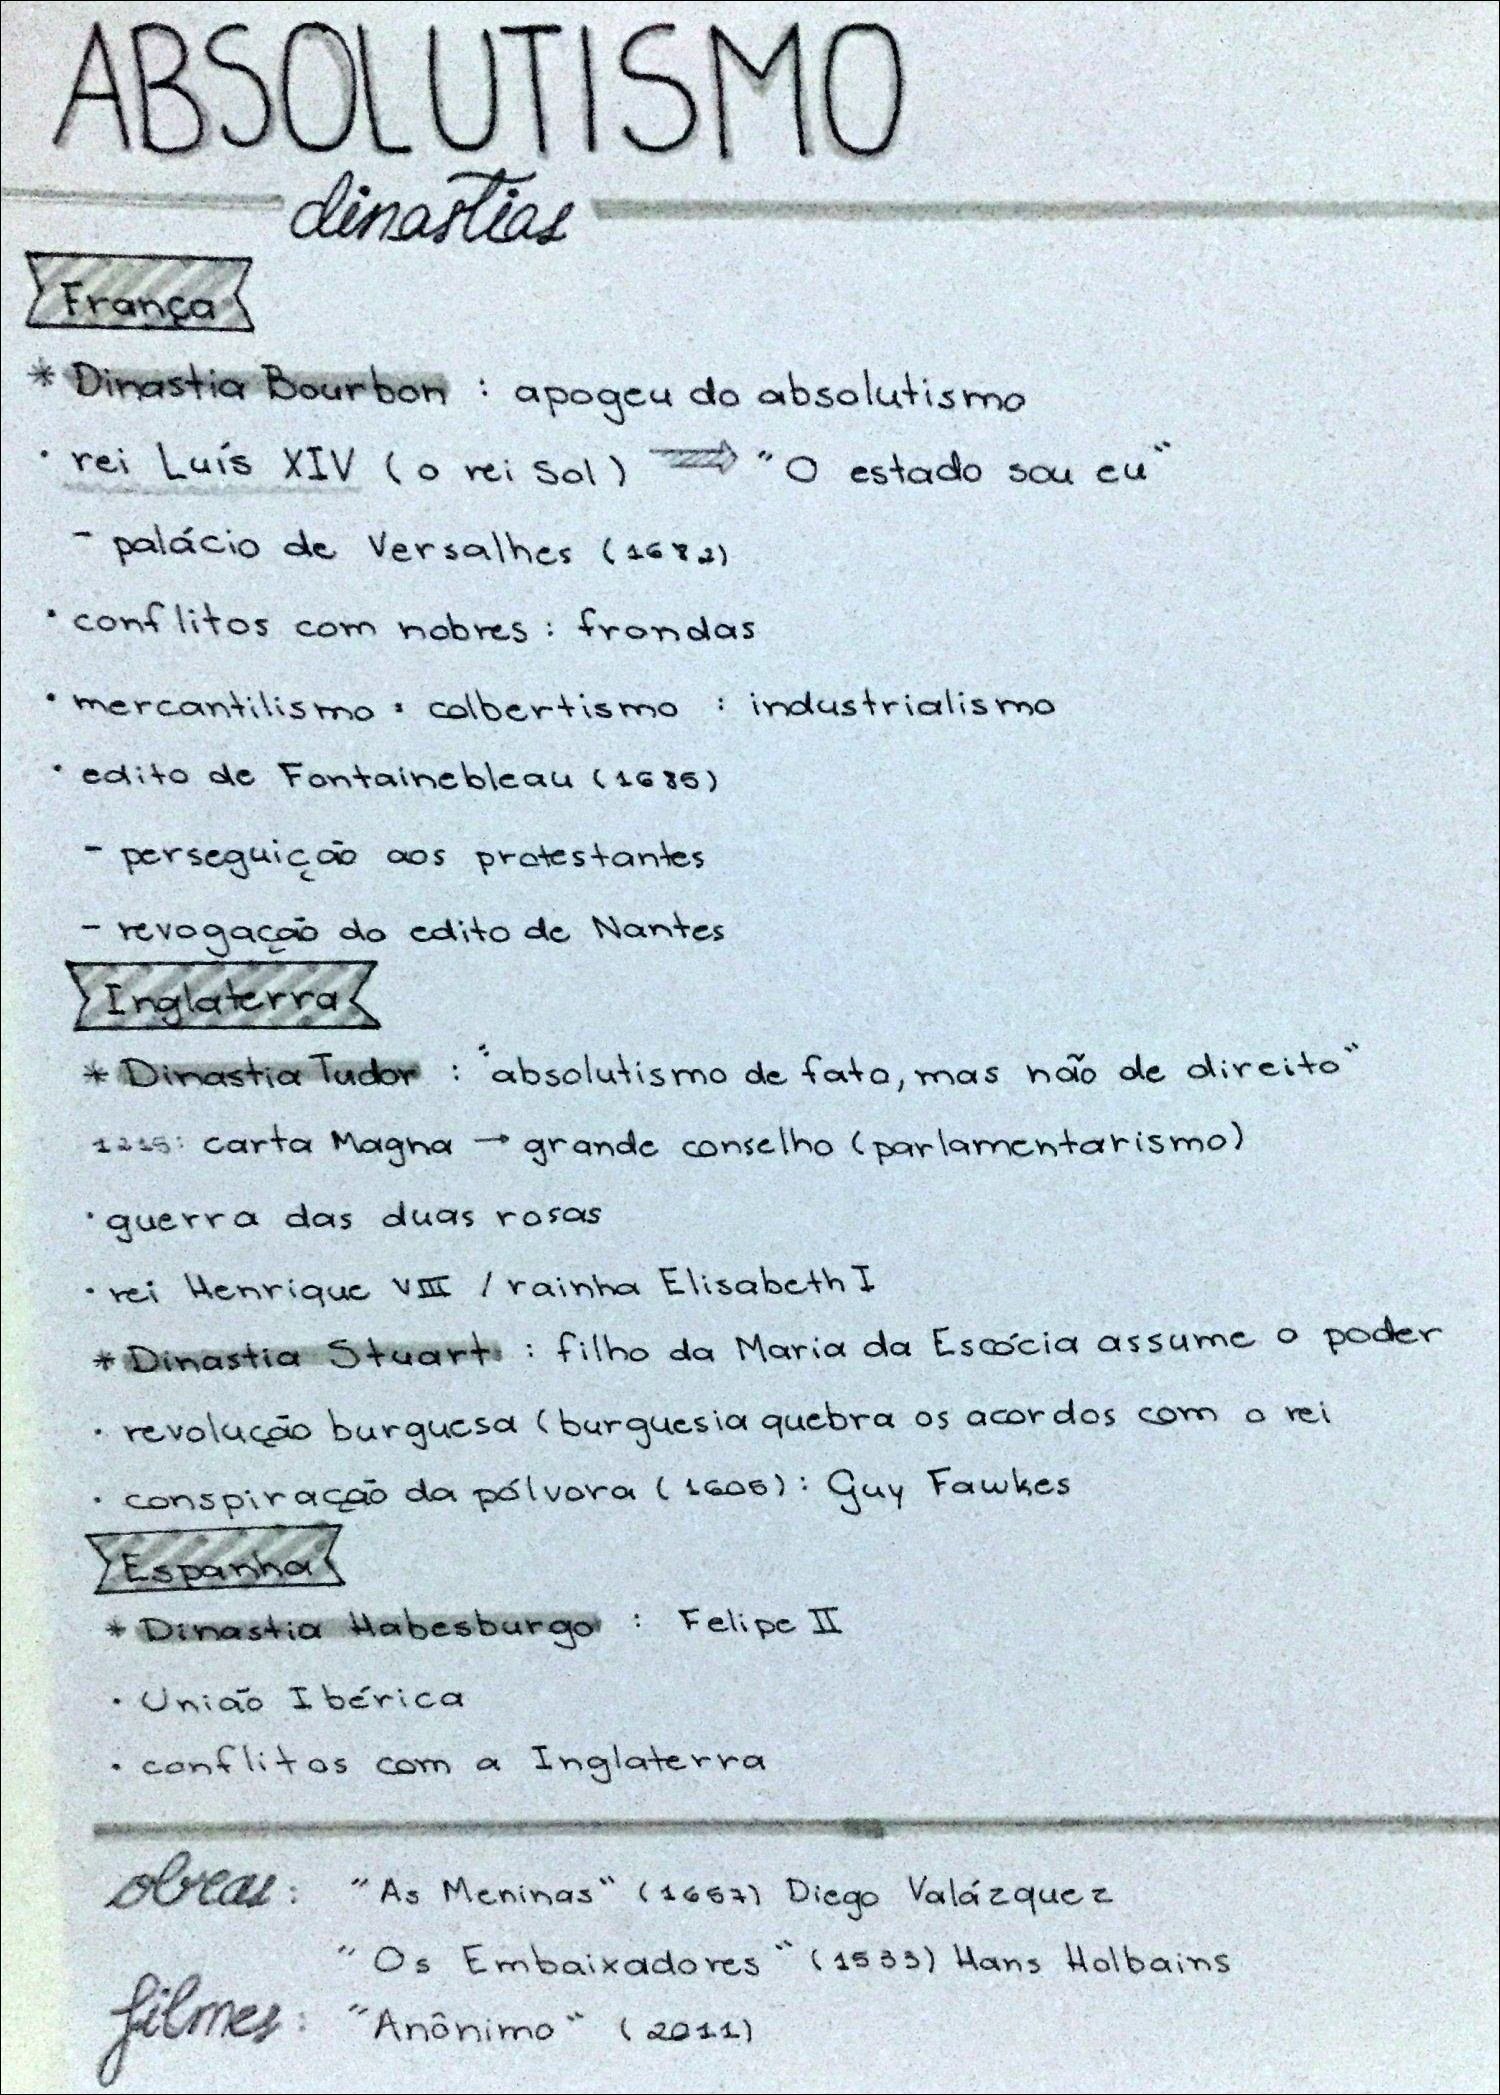 ABSOLUTISMO
dinastias
França
* Dinastia Bourbon : apogeu do absolutismo
• rei Luís XIV (o rei Sol) ⇒ "O estado sou eu"
- palácio de Versalhes (1682)
• conflitos com nobres: frondas
• mercantilismo : colbertismo : industrialismo
• edito de Fontainebleau (1685)
- perseguição aos protestantes
- revogação do edito de Nantes
Inglaterra
* Dinastia Tudor : "absolutismo de fato, mas não de direito"
1215: carta Magna → grande conselho (parlamentarismo)
• guerra das duas rosas
• rei Henrique VIII / rainha Elisabeth I
* Dinastia Stuart : filho da Maria da Escócia assume o poder
• revolução burguesa (burguesia quebra os acordos com o rei
• conspiração da pólvora (1605): Guy Fawkes
Espanha
* Dinastia Habesburgo : Felipe II
• União Ibérica
• conflitos com a Inglaterra
obras: "As Meninas" (1657) Diego Valázquez
"Os Embaixadores" (1533) Hans Holbains
filmes: "Anônimo" (2011)